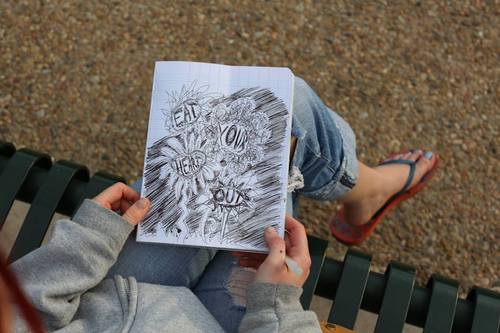 EAT
YOUR
HEART
OUT